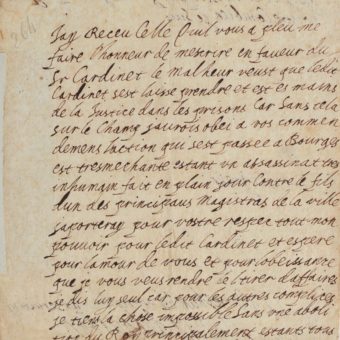 Jay Receu Celle quil vous a pleu me
faire lhonneur de mescrire en faveur du
Sr Cardinet le malheur veust que ledit
Cardinet sest laisse prendre et est es mains
de la Justice dans les prisons Car Sans cela
sur le Champ jaurois obei a vos commen
demens laction qui sest passee a Bourges
est tresmechante estant un assassinat tres
inhumain fait en plain jour Contre le fils
dun des principaus Magistras de la ville
japorteray pour vostre respec tout mon
pouvoir pour ledit Cardinet et espere
pour lamour de vous et pour obeissance
que je vous veus rendre le tirer daffaires
je dis luy seul car pour les autres complices
je tiens la chose impossible sans une aboli
tion du Roy principalement estants tous